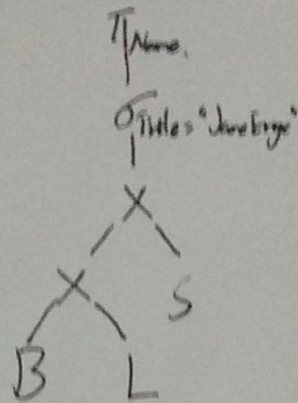 π Name.
σ Title="Jane Eyre"
X
X S
B L